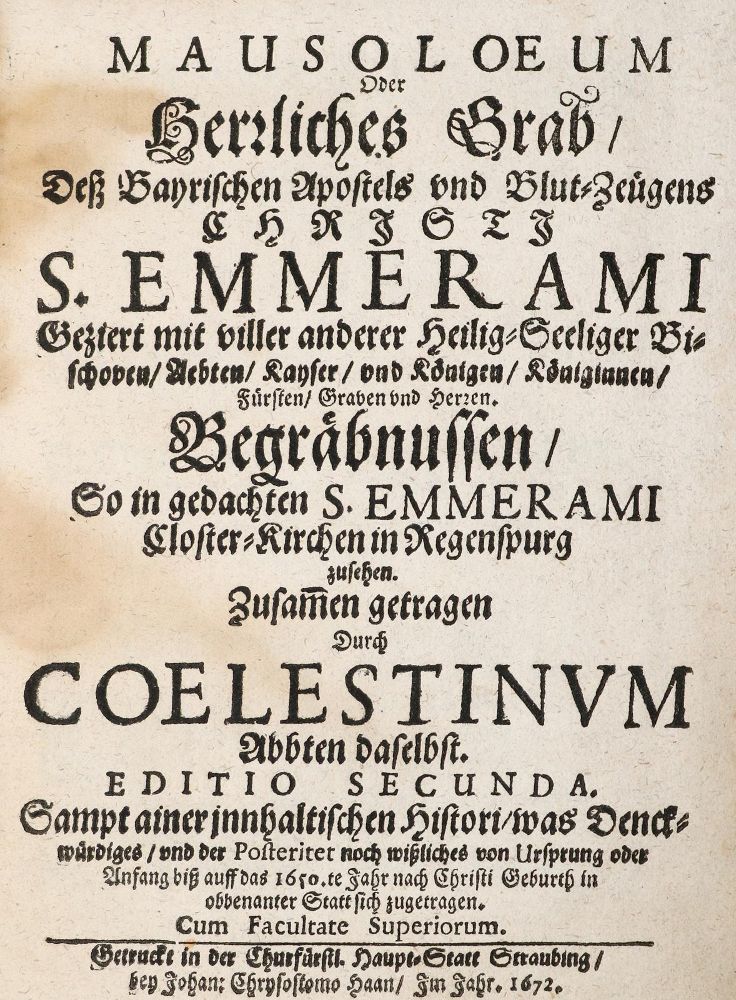 MAUSOLOEUM
Oder
Herꝛliches Grab/
Deß Bayrischen Apostels vnd Blut-Zeügens
CHRISTI
S. EMMERAMI
Geziert mit viller anderer Heilig-Seeliger Bi-
schoven/ Aebten/ Kayser/ vnd Königen/ Königinnen/
Fürsten/ Graven vnd Herꝛen.
Begräbnussen/
So in gedachten S. EMMERAMI
Closter-Kirchen in Regenspurg
zusehen.
Zusam̃en getragen
Durch
COELESTINVM
Abbten daselbst.
EDITIO SECUNDA.
Sampt ainer jnnhaltischen Histori/was Denck-
würdiges/ vnd der Posteritet noch wißliches von Ursprung oder
Anfang biß auff das 1650.te Jahr nach Christi Geburth in
obbenanter Statt sich zugetragen.
Cum Facultate Superiorum.
Getruckt in der Churfürstl. Haupt-Statt Straubing/
bey Johan: Chrysostomo Haan/ Im Jahr. 1672.